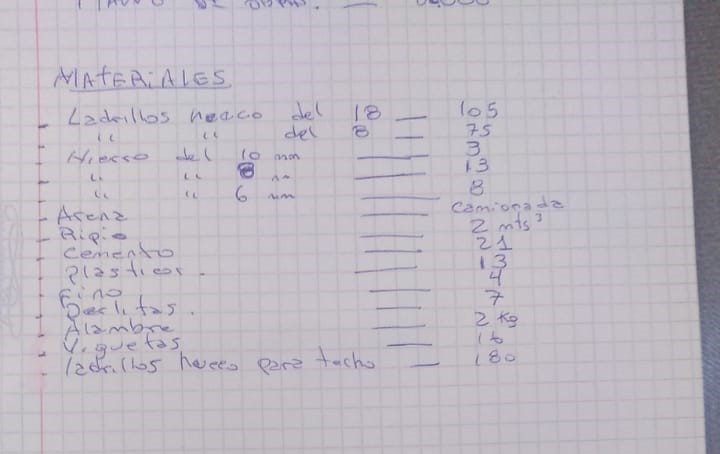 MANO DE OBRA. —
MATERIALES
- Ladrillos hueco del 18 — 105
- " " del 8 — 75
- Hierro del 10 mm — 3
- " " 8 mm — 13
- " " 6 mm — 8
- Arena — Camionada
- Ripio — 2 mts³
- Cemento — 21
- Plasticor. — 13
- Fino — 4
- Perlitas. — 7
- Alambre — 2 Kg
- Viguetas — 16
- ladrillos hueco para techo — 180